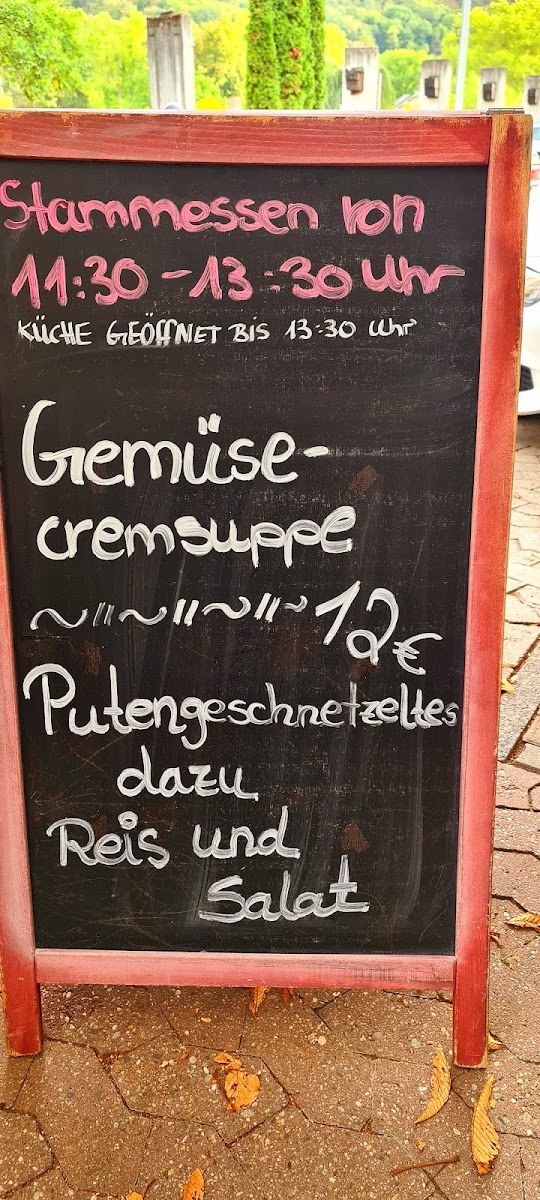 Stammessen von
11:30-13:30 Uhr
KÜCHE GEÖFFNET BIS 13:30 Uhr
Gemüse-
cremsuppe
~"~"~"~ 12€
Putengeschnetzeltes
dazu
Reis und
Salat